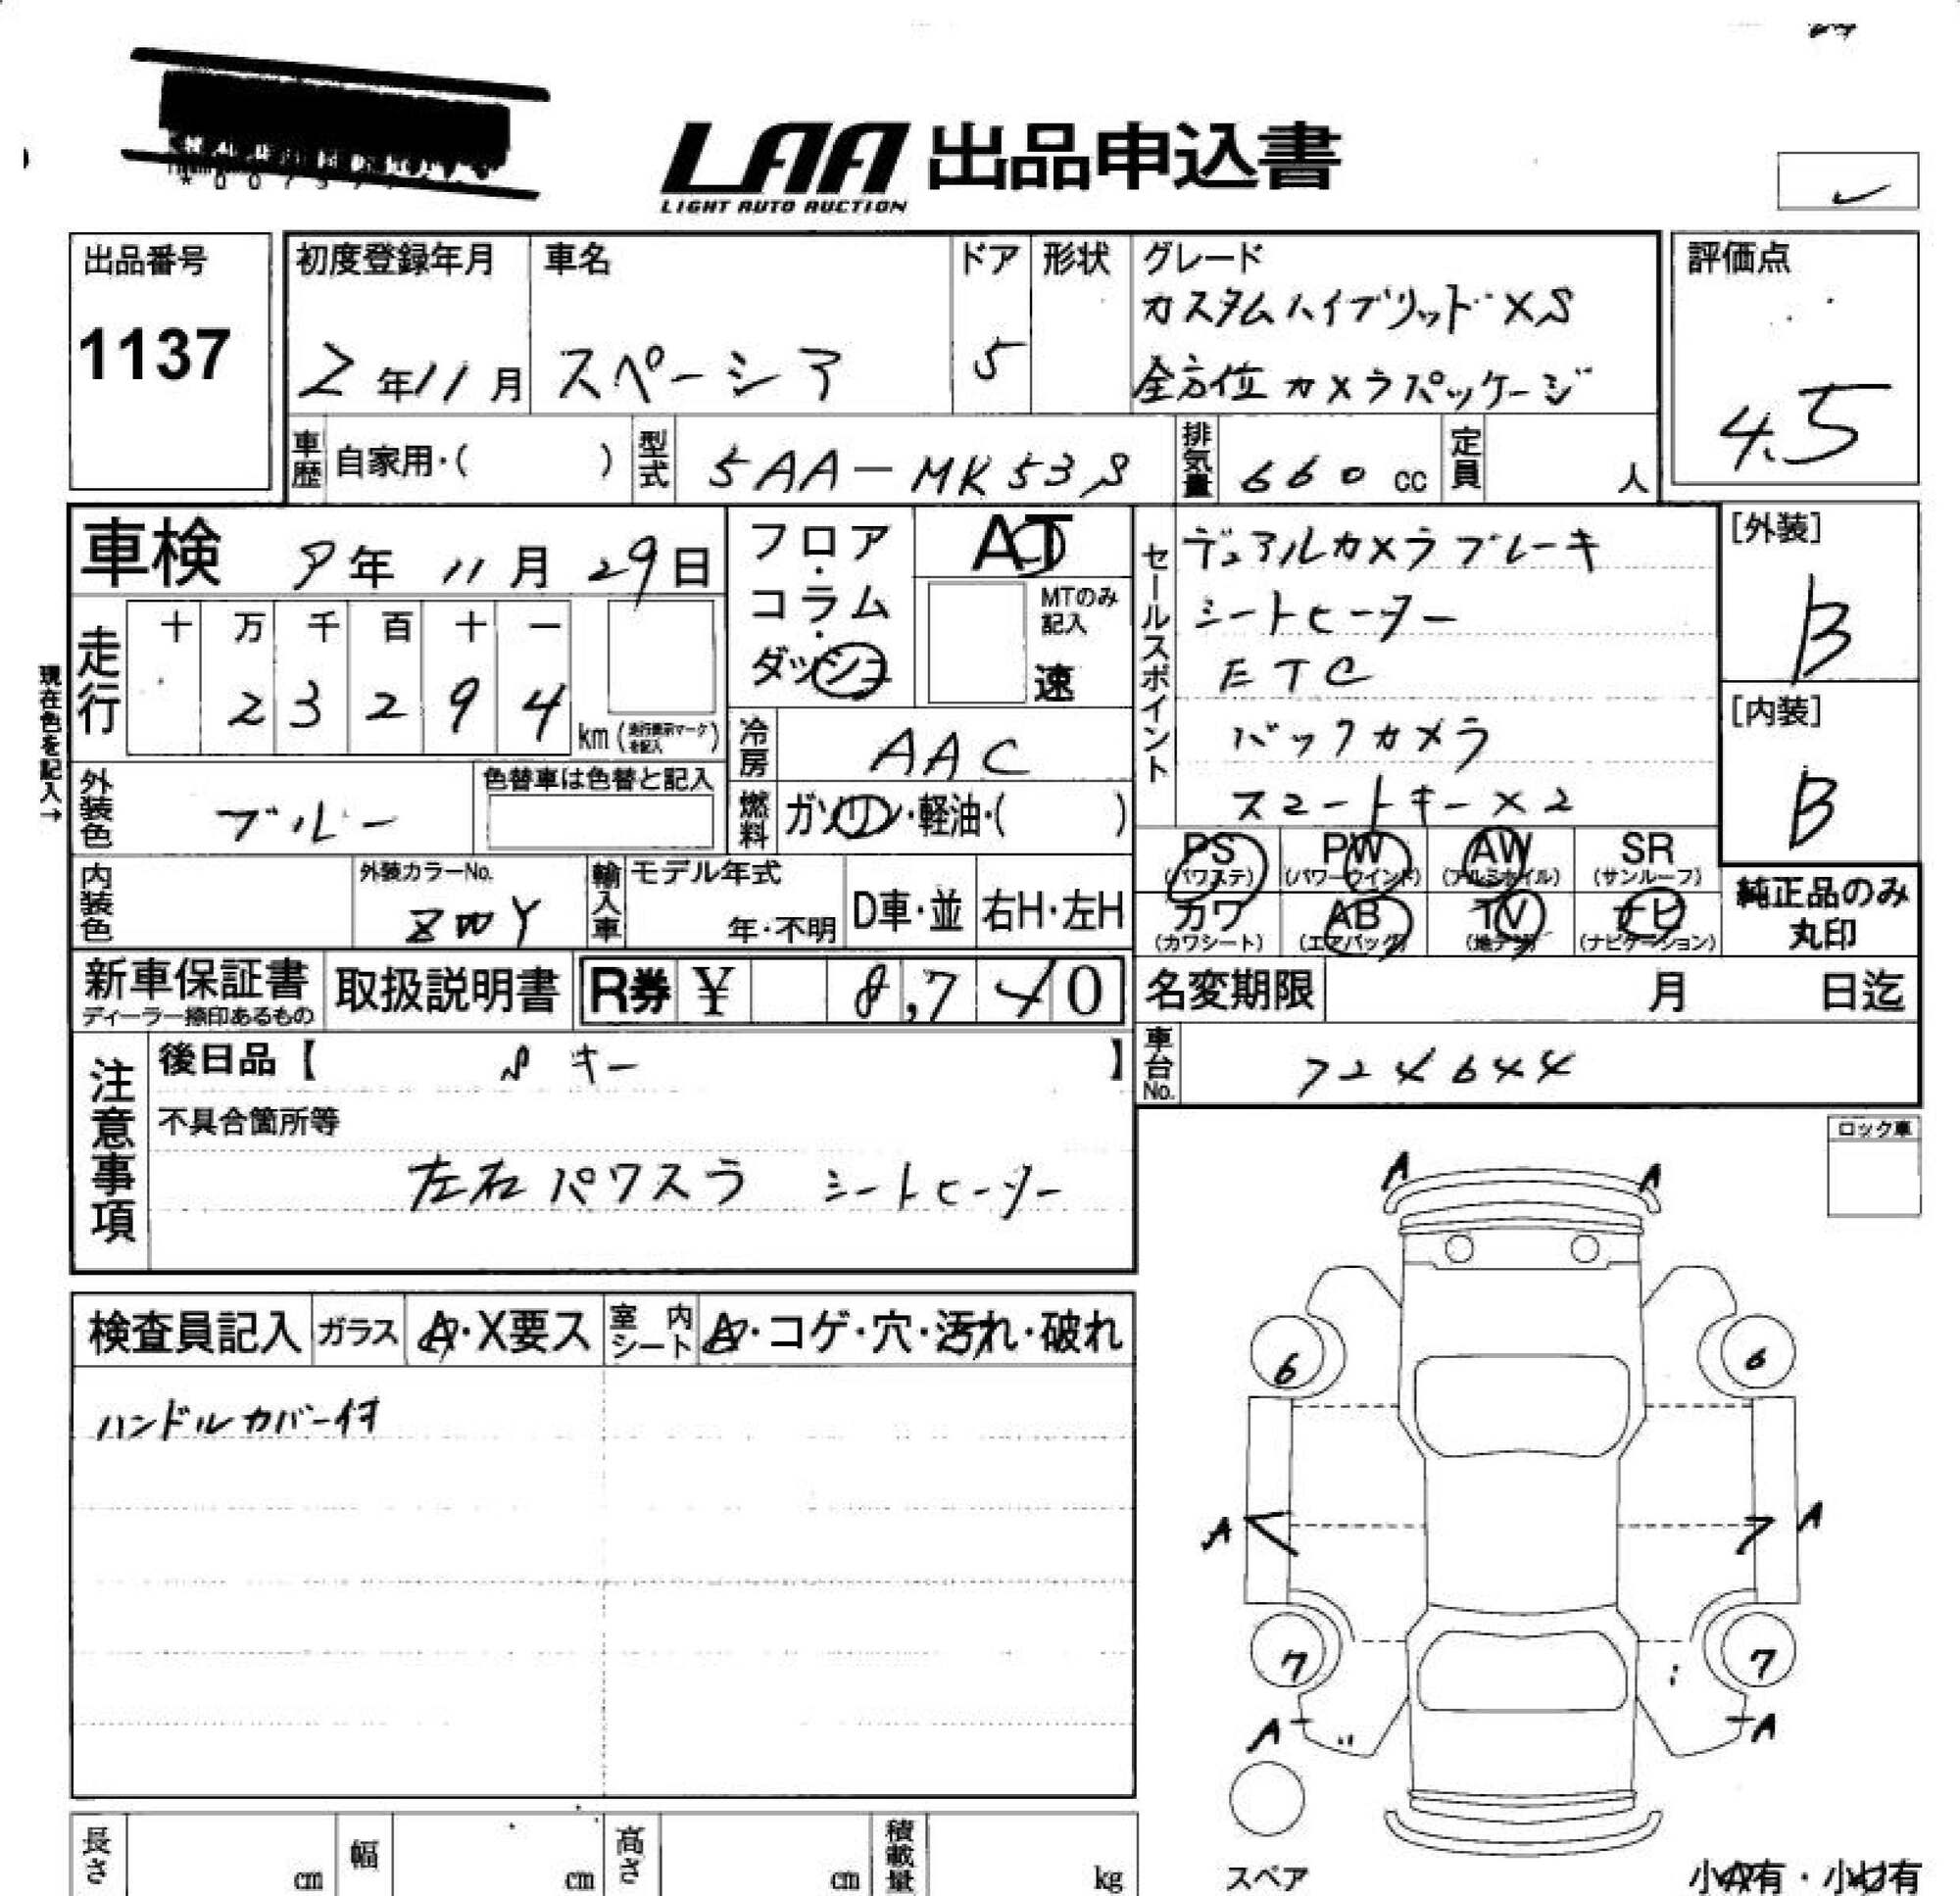 LAA 出品申込書
LIGHT AUTO AUCTION
出品番号
1137
初度登録年月
2年11月
車名
スペーシア
ドア
5
形状
グレード
カスタムハイブリッドXS
全方位カメラパッケージ
評価点
4.5
車歴
自家用・( )
型式
5AA-MK53S
排気量
660 cc
定員
人
車検
9年 11月 29日
走行
十 万 千 百 十 一
2 3 2 9 4
km
現在色を記入→
外装色
ブルー
色替車は色替と記入
内装色
外装カラーNo.
輸入車
モデル年式
年・不明
D車・並
右H・左H
フロア・
コラム・
ダッシュ
AT
MTのみ
記入
速
冷房
AAC
燃料
ガソリン・軽油・( )
セールスポイント
デュアルカメラブレーキ
シートヒーター
ETC
バックカメラ
スマートキー×2
[外装]
B
[内装]
B
PS
(パワステ)
PW
(パワーウインド)
AW
(アルミホイル)
SR
(サンルーフ)
カワ
(カワシート)
AB
(エアバッグ)
TV
(地デジ)
ナビ
(ナビゲーション)
純正品のみ
丸印
新車保証書
ディーラー捺印あるもの
取扱説明書
R券 ¥ 8,740
名変期限
月 日迄
車台No.
724644
注意事項
後日品【 Sキー 】
不具合箇所等
左右パワスラ シートヒーター
ロック車
検査員記入
ガラス
A・X要ス
室内シート
A・コゲ・穴・汚れ・破れ
ハンドルカバー付
A A
6 6
A A
7 7
A A
スペア
小A有・小U有
長さ
cm
幅
cm
高さ
cm
積載量
kg